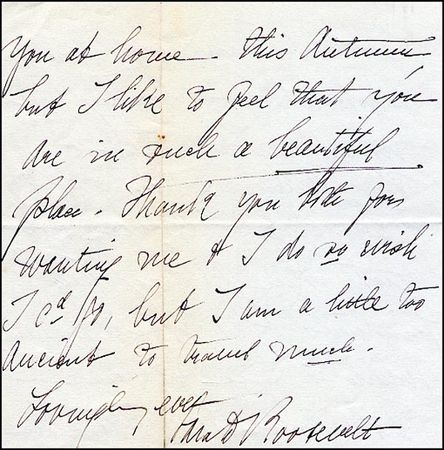 You at home this Autumn
but I like to feel that you
are in such a beautiful
place. Thank you both for
wanting me & I do so wish
I cd go, but I am a little too
ancient to travel much.
Lovingly ever
Sara D Roosevelt